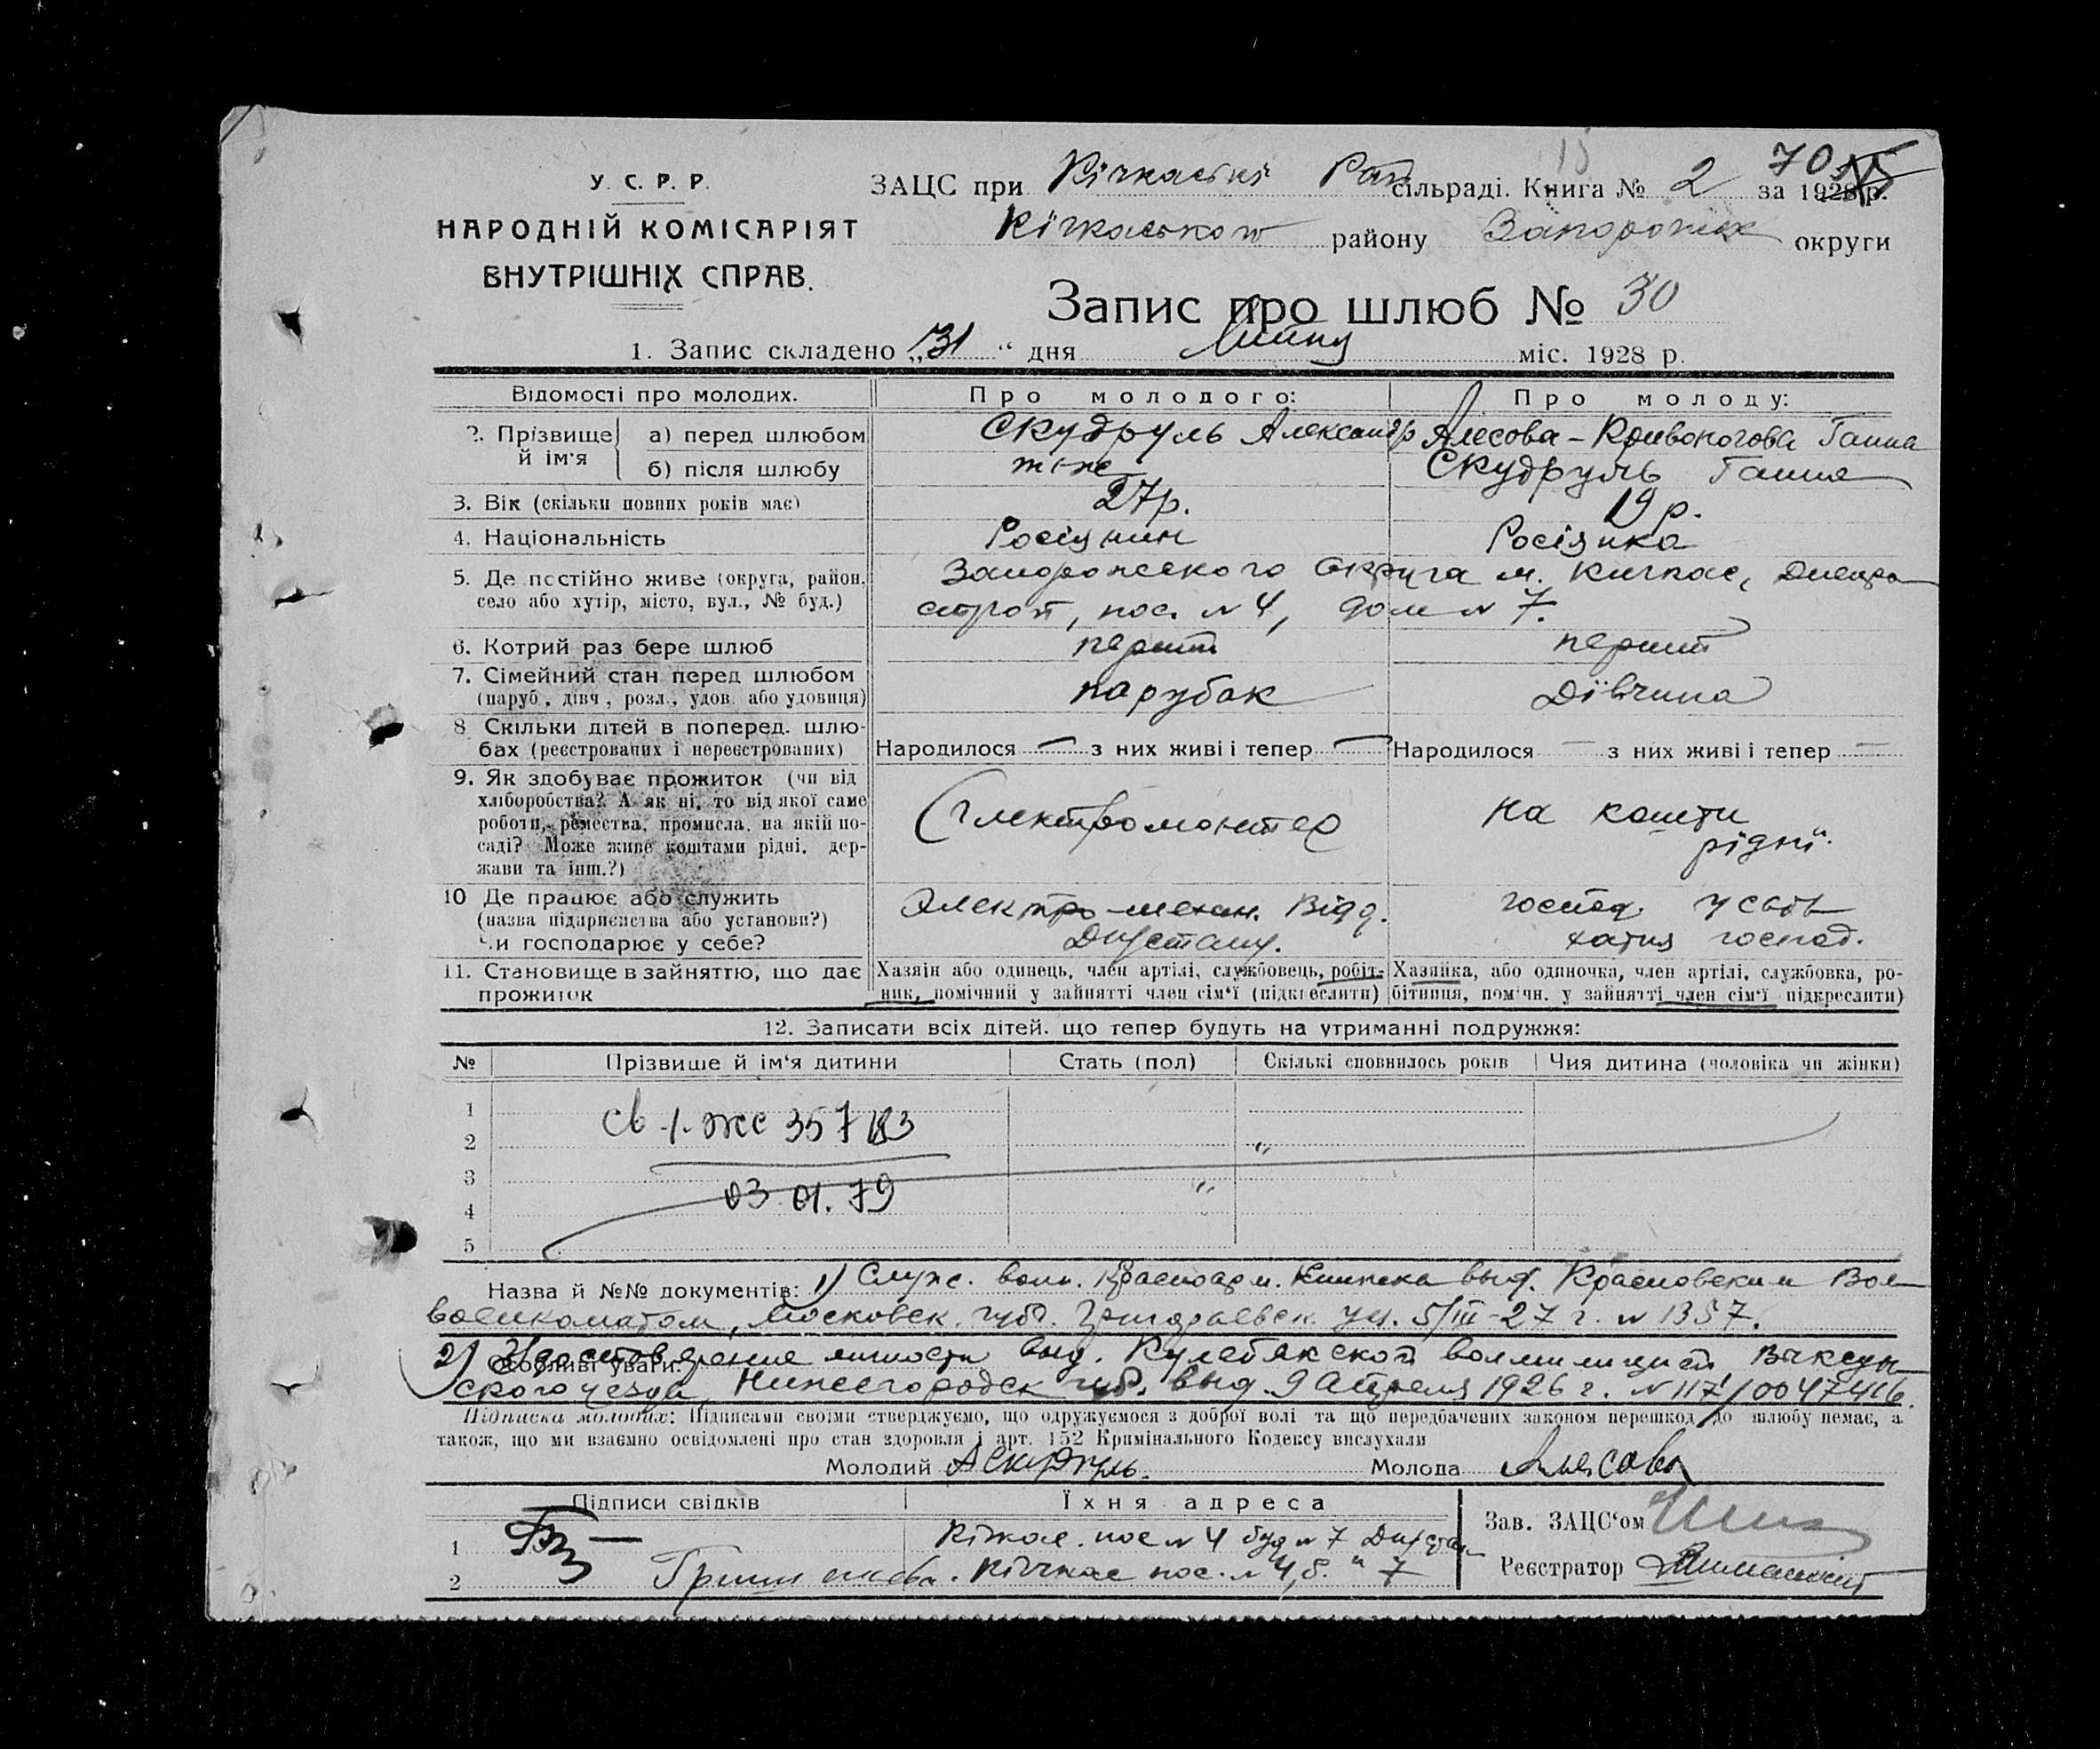 У. С. Р. Р.
НАРОДНІЙ КОМІСАРІЯТ
ВНУТРІШНІХ СПРАВ.
15
70
ЗАЦС при Кічкаські Рай сільраді. Книга № 2 за 1928 р.
Кічкаського району Запоріжж округи
Запис про шлюб № 30
1. Запис складено „31“ дня Липня міс. 1928 р.
Відомості про молодих.
Про молодого:
Про молоду:
2. Прізвище й ім'я
а) перед шлюбом
Скудруль Александр
Алесова-Кривоногова Ганна
б) після шлюбу
теж
Скудруль Ганна
3. Вік (скільки повних років має)
27р.
19 р.
4. Національність
Росіянин
Росіянка
5. Де постійно живе (округа, район,
село або хутір, місто, вул., № буд.)
Запорожского Округа м. Кичкас, Днепро
строй, пос. № 4, дом № 7.
6. Котрий раз бере шлюб
перший
перший
7. Сімейний стан перед шлюбом
(паруб., дівч., розл., удов. або удовиця)
парубак
Дівчина
8 Скільки дітей в поперед. шлю-
бах (реєстрованих і нереєстрованих)
Народилося — з них живі і тепер —
Народилося — з них живі і тепер —
9. Як здобуває прожиток (чи від
хліборобства? А як ні, то від якої саме
роботи, ремества, промисла, на якій по-
саді? Може живе коштами рідні, дер-
жави та інш.?)
Електромонтер
на кошти
рідні.
10 Де працює або служить
(назва підприємства або установи?)
Чи господарює у себе?
Электро-механ. Відд.
Дніпрстану.
господ. у себе
хатня господ.
11. Становище в зайняттю, що дає
прожиток
Хазяїн або одинець, член артілі, службовець, робіт-
ник, помічний у зайнятті член сім'ї (підкреслити)
Хазяйка, або одиночка, член артілі, службовка, ро-
бітниця, помічн. у зайнятті член сім'ї підкреслити)
12. Записати всіх дітей, що тепер будуть на утриманні подружжя:
№ Прізвище й ім'я дитини Стать (пол) Скількі сповнилось років Чия дитина (чоловіка чи жінки)
1
2
3
4
5
св 1-жс 357183
03.01.79
Назва й №№ документів: 1) Служ. воин. Красноарм. Книжка выд. Красновским Вол
военкоматом, Московск. губ. 5/III-27 г. № 1357.
Особливі уваги:
2) Удостоверение личности выд. Кулебякской волмилицией Выксун-
ского уезда, Нижегородск губ. выд. 9 Апреля 1926 г. № 117/0047416.
Підписка молодих: Підписами своїми стверджуємо, що одружуємося з доброї волі та що передбачених законом перешкод до шлюбу немає, а
також, що ми взаємно освідомлені про стан здоровля і арт. 152 Кримінального Кодексу вислухали
Молодий АСкудруль. Молода Алесова
Підписи свідків
Їхня адреса
1 Кічкас. пос № 4 буд № 7
2 Кічкас пос. № 4, б. " 7
Зав. ЗАЦС'ом
Реєстратор